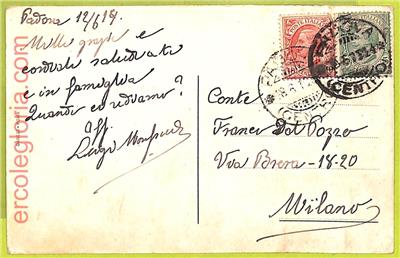 Padova 12/6 19.
Mille grazie e
cordiali saluti a te
e in famiglia
Quando ci rediamo?
Aff.
Luigi
Conte
Franco Dal Pozzo
Via Brera - 18-20
Milano
(CENTRO)
ercolegloria.com